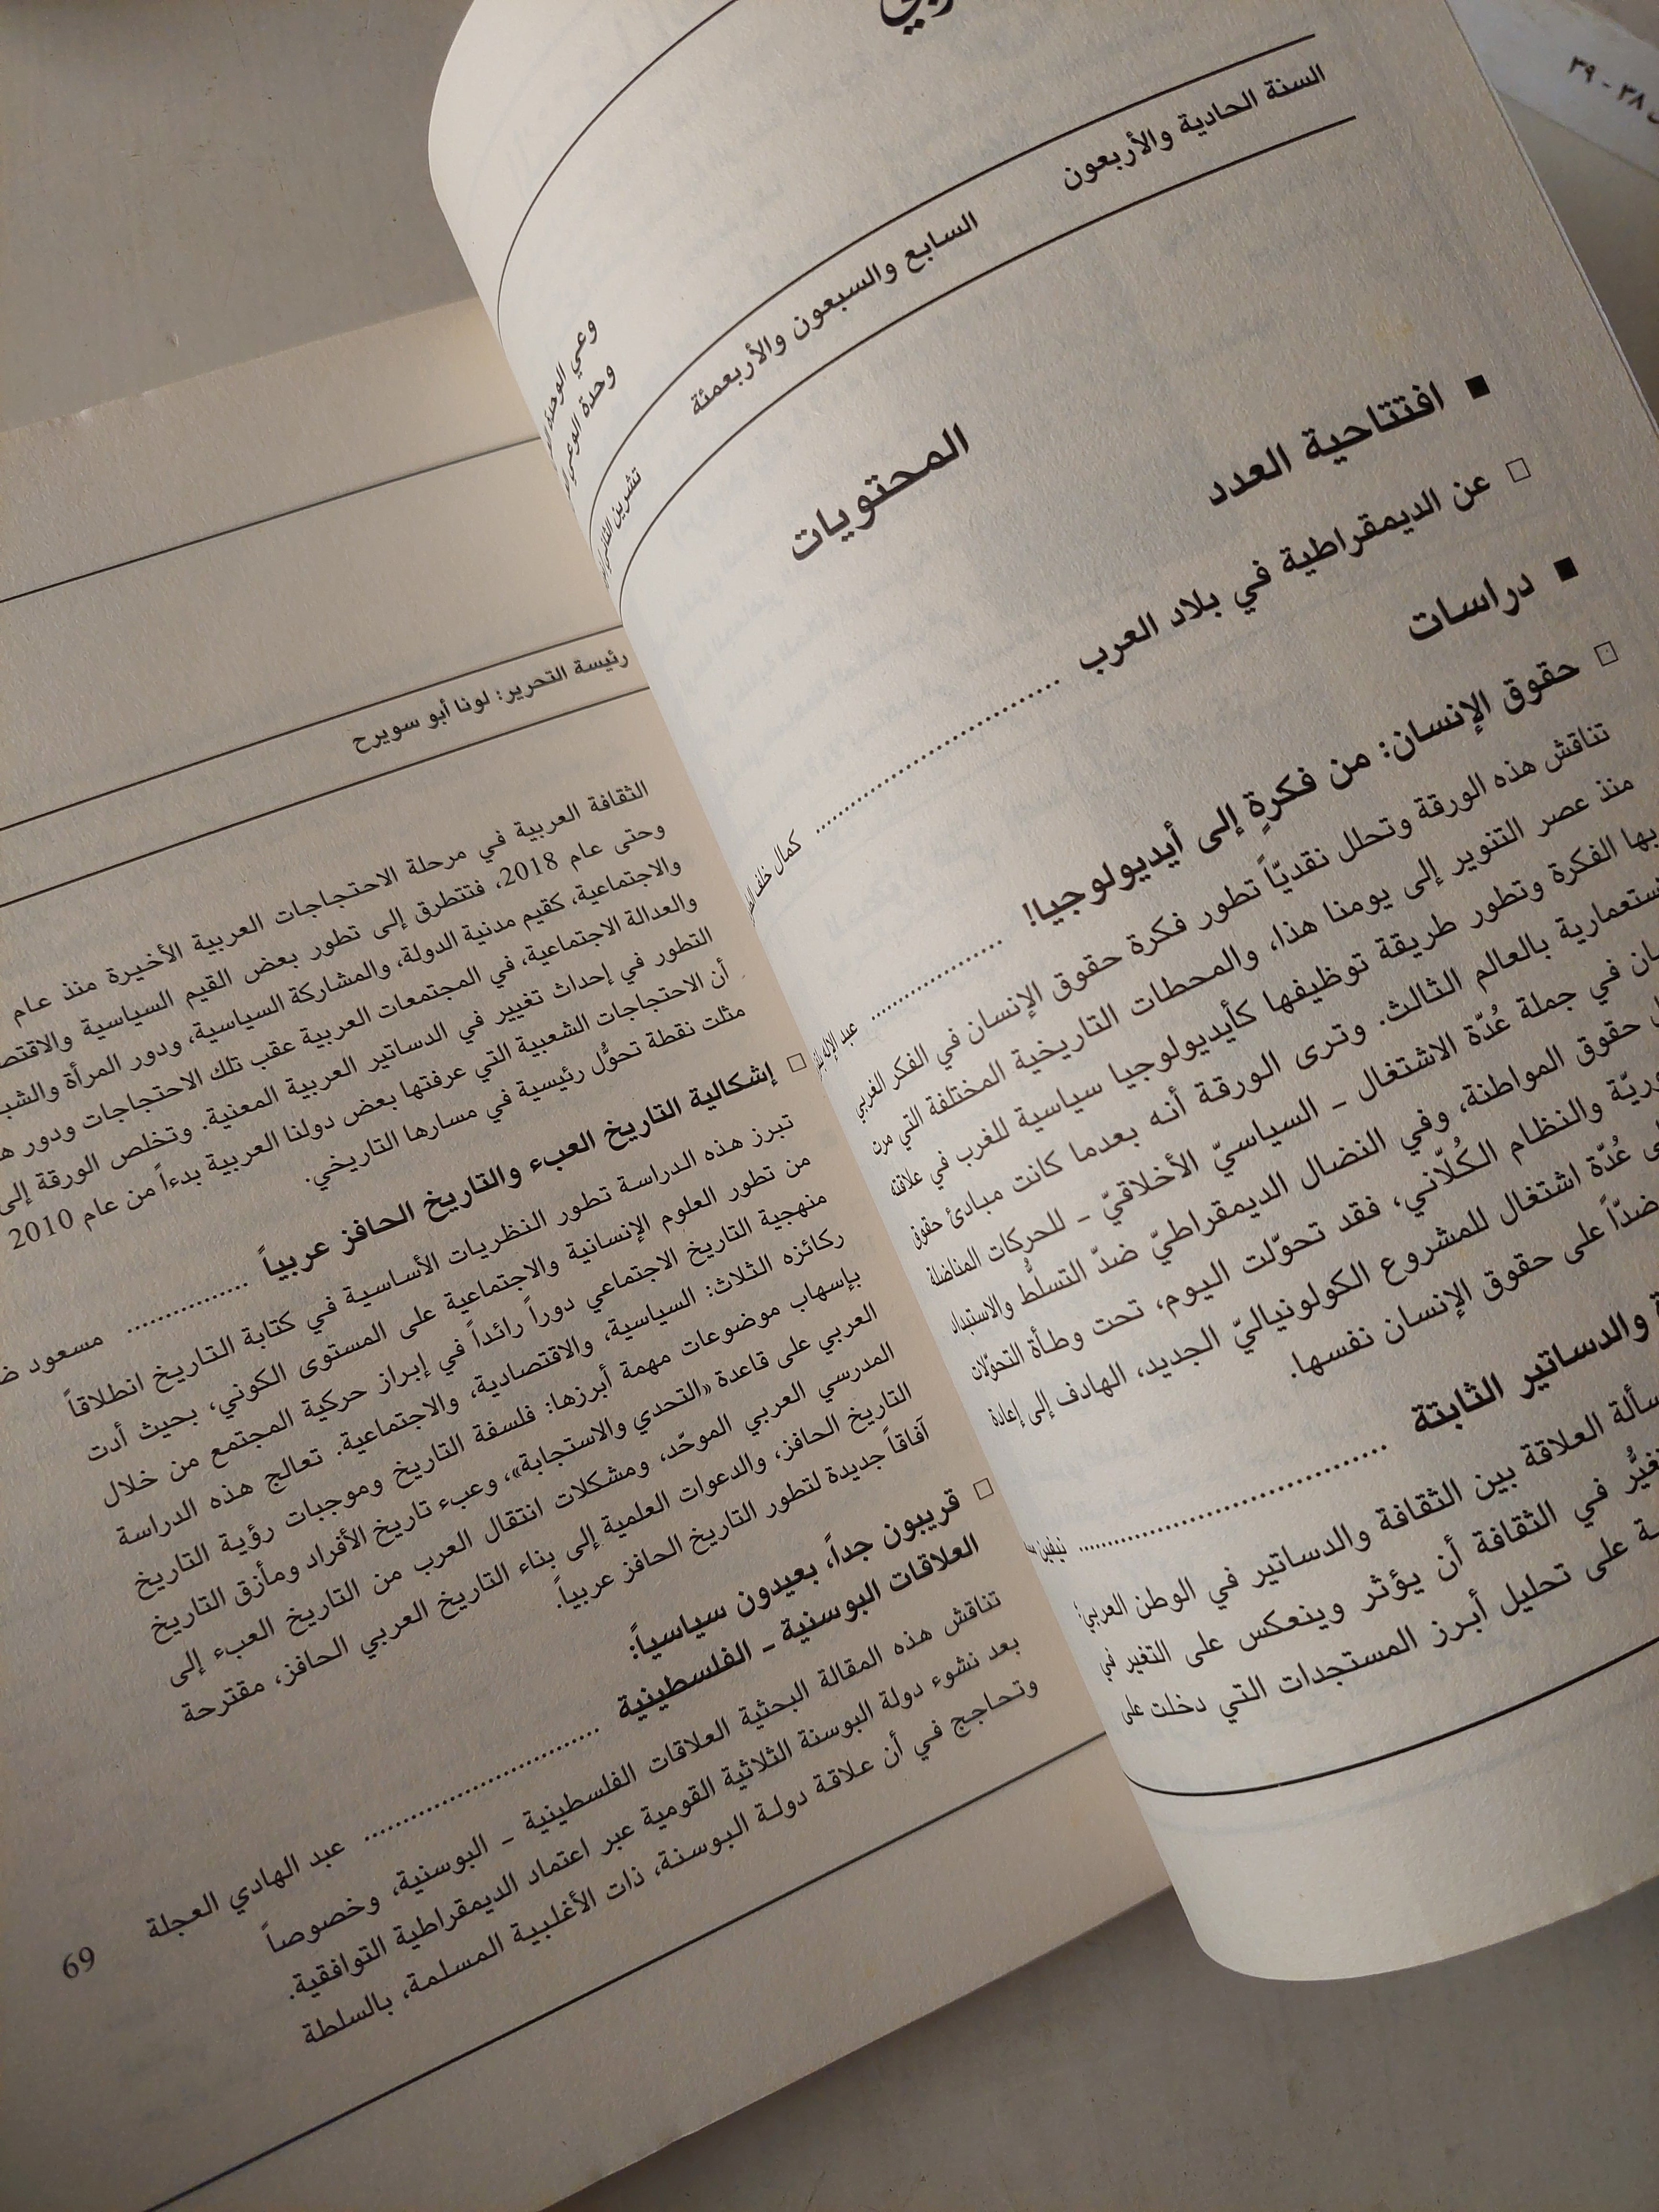 السنة الحادية والأربعون
السابع والسبعون والأربعمئة
تشرين الثاني
وعي الوحدة
وحدة الوعي
المحتويات
■ افتتاحية العدد
□ عن الديمقراطية في بلاد العرب ........ كمال خلف
■ دراسات
□ حقوق الإنسان: من فكرةٍ إلى أيديولوجيا! ........ عبد الإله
تناقش هذه الورقة وتحلل نقديّاً تطور فكرة حقوق الإنسان في الفكر الغربي
منذ عصر التنوير إلى يومنا هذا، والمحطات التاريخية المختلفة التي مرت
بها الفكرة وتطور طريقة توظيفها كأيديولوجيا سياسية للغرب في علاقته
بالعالم الثالث. وترى الورقة أنه بعدما كانت مبادئ حقوق
في جملة عُدّة الاشتغال – السياسيّ الأخلاقيّ – للحركات المناضلة
حقوق المواطنة، وفي النضال الديمقراطيّ ضدّ التسلُّط والاستبداد
والنظام الكُلّاني، فقد تحوّلت اليوم، تحت وطأة التحوّلات
عُدّة اشتغال للمشروع الكولونياليّ الجديد، الهادف إلى إعادة
ضدّاً على حقوق الإنسان نفسها.
والدساتير الثابتة ........ نيفين
العلاقة بين الثقافة والدساتير في الوطن العربي؛
في الثقافة أن يؤثر وينعكس على التغير في
على تحليل أبرز المستجدات التي دخلت على
رئيسة التحرير: لونا أبو سويرح
الثقافة العربية في مرحلة الاحتجاجات العربية الأخيرة منذ عام
وحتى عام 2018، فتتطرق إلى تطور بعض القيم السياسية
والاجتماعية، كقيم مدنية الدولة، والمشاركة السياسية، ودور المرأة
والعدالة الاجتماعية، في المجتمعات العربية عقب تلك الاحتجاجات ودور
التطور في إحداث تغيير في الدساتير العربية المعنية. وتخلص الورقة إلى
أن الاحتجاجات الشعبية التي عرفتها بعض دولنا العربية بدءاً من عام 2010
مثلت نقطة تحوُّل رئيسية في مسارها التاريخي.
□ إشكالية التاريخ العبء والتاريخ الحافز عربياً ........ مسعود
تبرز هذه الدراسة تطور النظريات الأساسية في كتابة التاريخ انطلاقاً
من تطور العلوم الإنسانية والاجتماعية على المستوى الكوني، بحيث أدت
منهجية التاريخ الاجتماعي دوراً رائداً في إبراز حركية المجتمع من خلال
ركائزه الثلاث: السياسية، والاقتصادية، والاجتماعية. تعالج هذه الدراسة
بإسهاب موضوعات مهمة أبرزها: فلسفة التاريخ وموجبات رؤية التاريخ
العربي على قاعدة «التحدي والاستجابة»، وعبء تاريخ الأفراد ومأزق التاريخ
المدرسي العربي الموحّد، ومشكلات انتقال العرب من التاريخ العبء إلى
التاريخ الحافز، والدعوات العلمية إلى بناء التاريخ العربي الحافز، مقترحة
آفاقاً جديدة لتطور التاريخ الحافز عربياً.
□ قريبون جداً، بعيدون سياسياً:
العلاقات البوسنية – الفلسطينية ........ عبد الهادي العجلة 69
تناقش هذه المقالة البحثية العلاقات الفلسطينية – البوسنية، وخصوصاً
بعد نشوء دولة البوسنة الثلاثية القومية عبر اعتماد الديمقراطية التوافقية.
وتحاجج في أن علاقة دولة البوسنة، ذات الأغلبية المسلمة، بالسلطة